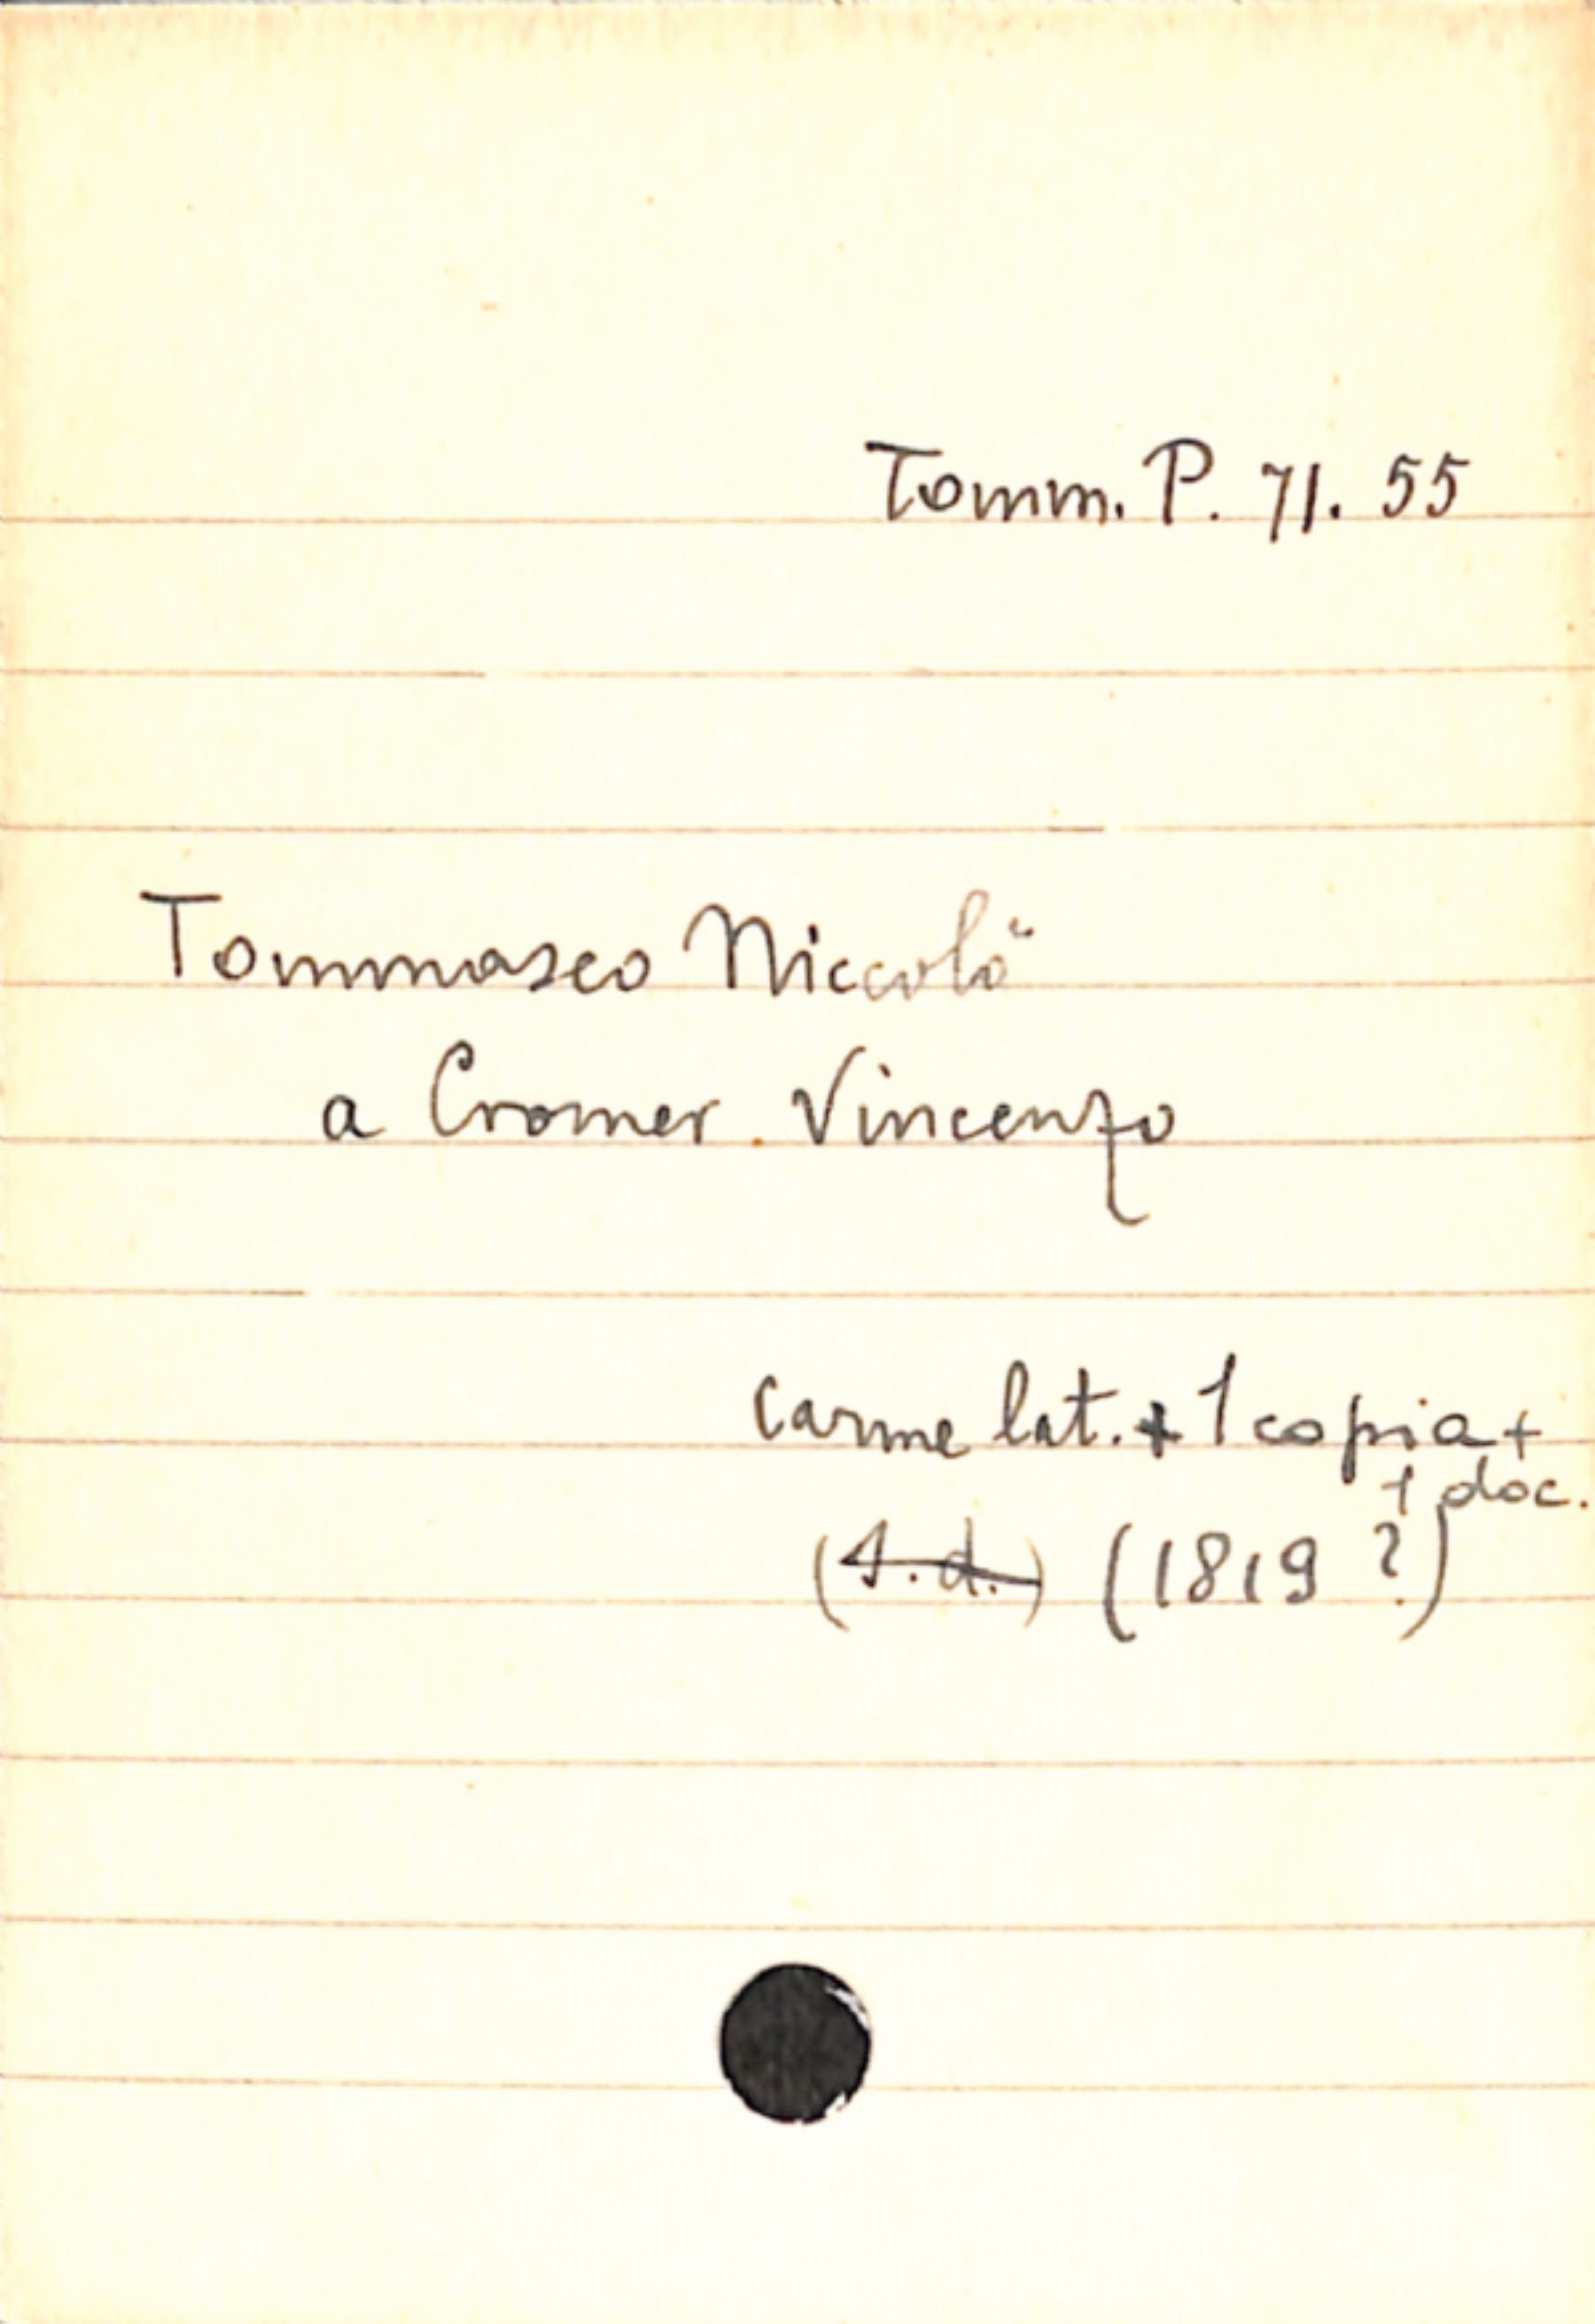 Tomm. P. 71. 55
Tommaseo Niccolò
a Cromer Vincenzo
Carme lat. + 1 copia +
1 doc.
(s.d.) (1819 ?)